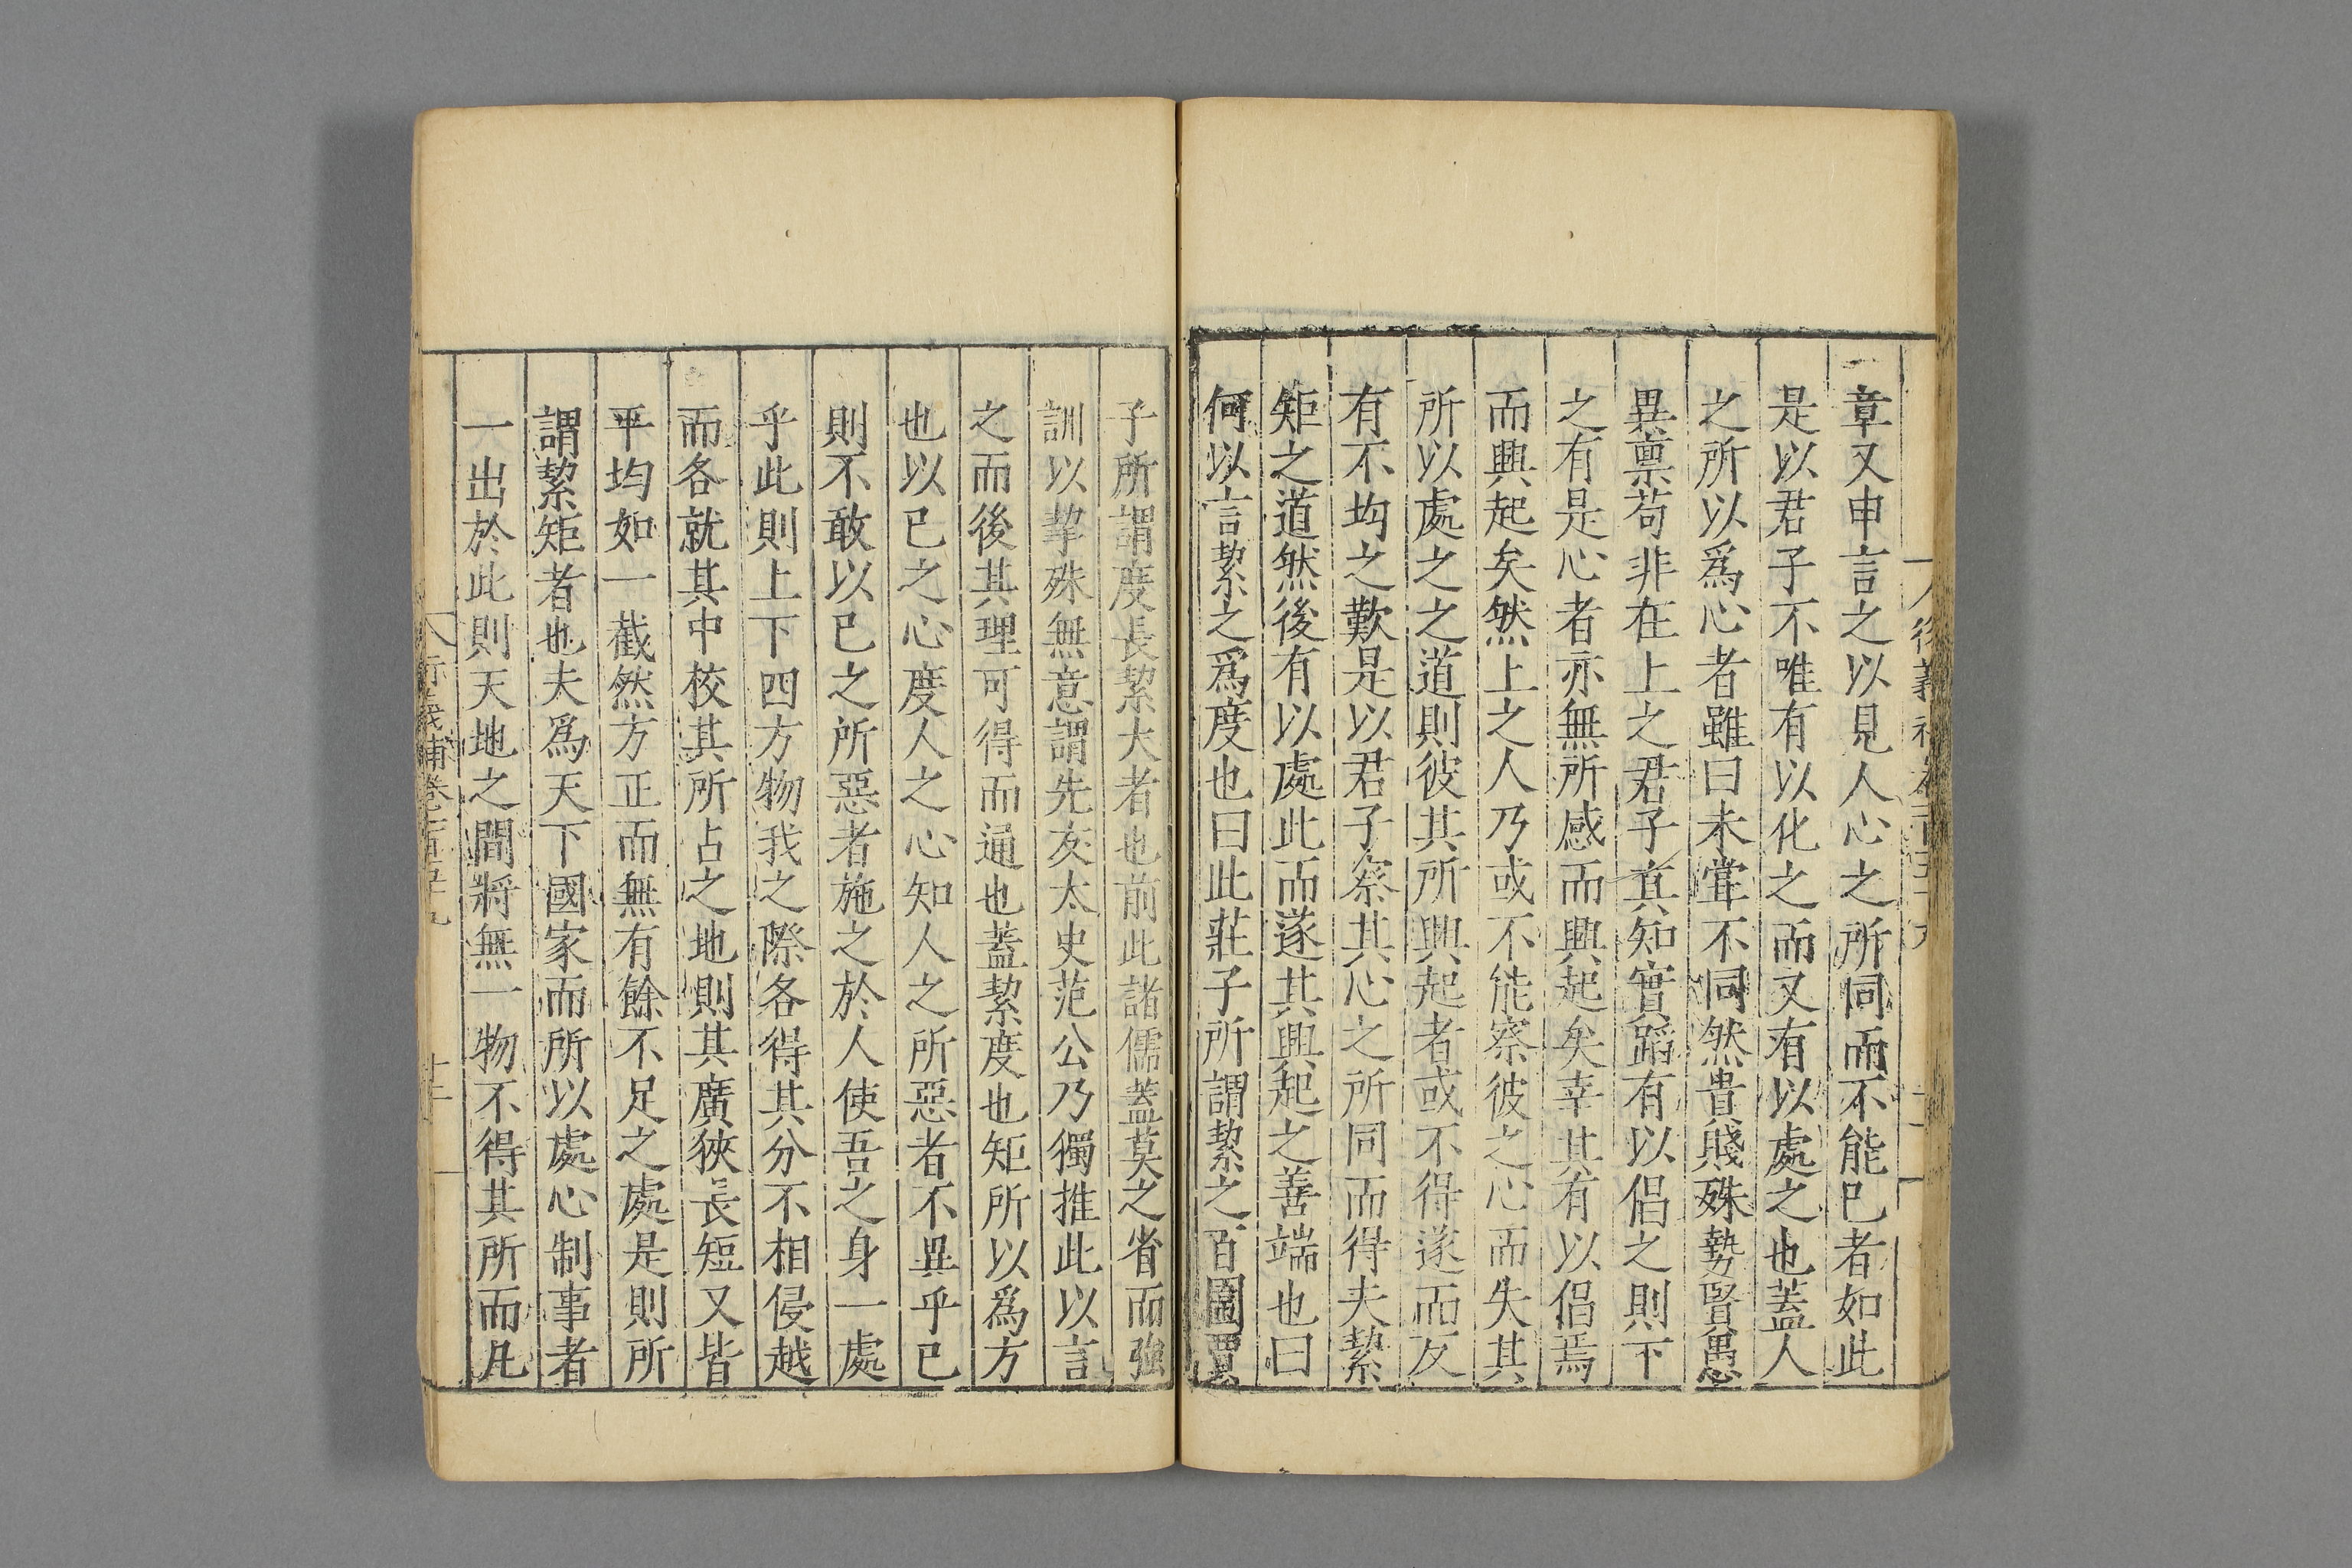 章又申言之以見人心之所同而不能已者如此
是以君子不唯有以化之而又有以處之也蓋人
之所以爲心者雖曰未嘗不同然貴賤殊勢賢愚
異禀苟非在上之君子真知實蹈有以倡之則下
之有是心者亦無所感而興起矣幸其有以倡焉
而興起矣然上之人乃或不能察彼之心而失其
所以處之之道則彼其所興起者或不得遂而反
有不均之歎是以君子察其心之所同而得夫絜
矩之道然後有以處此而遂其興起之善端也曰
何以言絜之爲度也曰此莊子所謂絜之百圍賈
子所謂度長絜大者也前此諸儒蓋莫之省而強
訓以挈殊無意謂先友太史范公乃獨推此以言
之而後其理可得而通也蓋絜度也矩所以爲方
也以已之心度人之心知人之所惡者不異乎已
則不敢以已之所惡者施之於人使吾之身一處
乎此則上下四方物我之際各得其分不相侵越
而各就其中校其所占之地則其廣狹長短又皆
平均如一截然方正而無有餘不足之處是則所
謂絜矩者也夫爲天下國家而所以處心制事者
一出於此則天地之間將無一物不得其所而凡